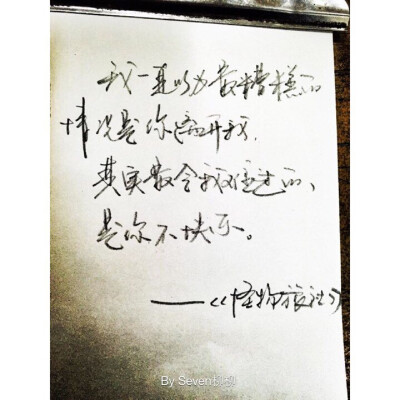 我一直以为最糟糕的
情况是你离开我.
其实最令我难过的、
是你不快乐。
——《怪物旅社》